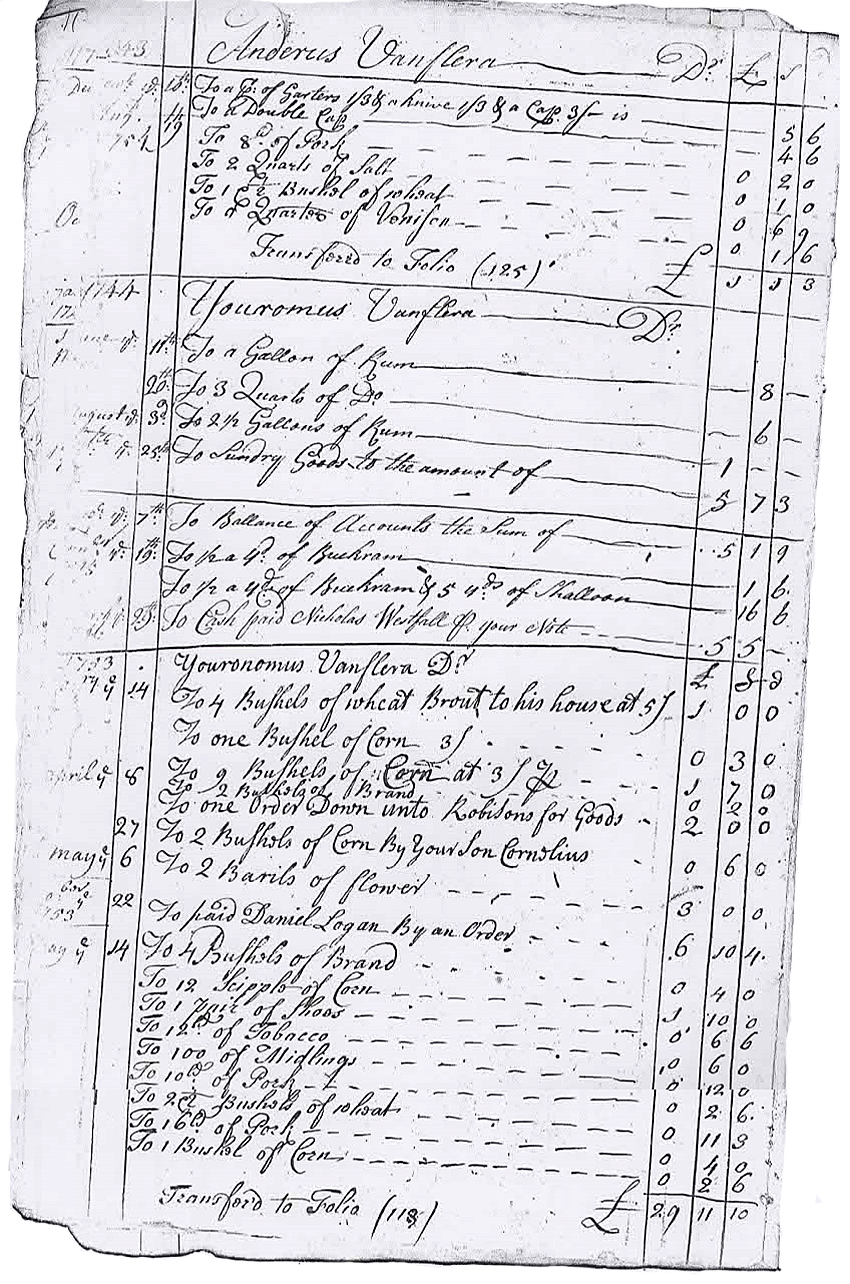 11
1743 Anderus Vanflera Dr £ s d
Decemb ye 18th To a p. of Garters 1/3 & a knive 1/3 & a Cap 3/- is 5 6
14 To a Double Cap 4 6
1754 19 To 8d of Pork 0 2 0
To 2 Quarts of Salt 0 1 0
To 1 & ½ Bushel of wheat 0 6 9
To a Quarter of Venison 0 1 6
Transferd to Folio (125) £ 1 1 3
1744 Youromus Vanflera Dr
June ye 11th To a Gallon of Rum 8 -
20th To 3 Quarts of Do - 6 -
August ye 3d To 2 1/2 Gallons of Rum 1 - -
ye 25th To Sundry Goods to the amount of 5 7 3
ye 7th To Ballance of Accounts the Sum of 5 1 9
ye 19th To 1/2 a yd. of Buckram 1 6
To 1/2 a yd of Buckram & 5 yds of Shalloon 16 6
29th To Cash paid Nicholas Westfall P. your Note 5 5 -
1753 Youronomus Vanflera Dr £ s d
ye 14 To 4 Bushels of wheat Brout to his house at 5/ 1 0 0
To one Bushel of Corn 3/ 0 3 0
April ye 8 To 9 Bushels of Corn at 3/ P 1 7 0
To 2 Bushels of Brand 0 2 0
To one Order Down unto Robisons for Goods 2 0 0
27 To 2 Bushels of Corn By Your Son Cornelius 0 6 0
may ye 6 To 2 Barils of flower 3 0 0
22 To paid Daniel Logan By an Order 6 10 4
may ye 14 To 4 Bushels of Brand 0 4 0
To 12 Scipple of Corn 1 10 0
To 1 pair of Shoos 0 6 6
To 12d of Tobacco 0 6 0
To 100 of Midlings 0 12 0
To 10d of Pork 0 2 6
To 2 & ½ Bushels of wheat 0 11 3
To 16d of Pork 0 4 0
To 1 Bushel of Corn 0 2 6
Transferd to Folio (118) £ 29 11 10